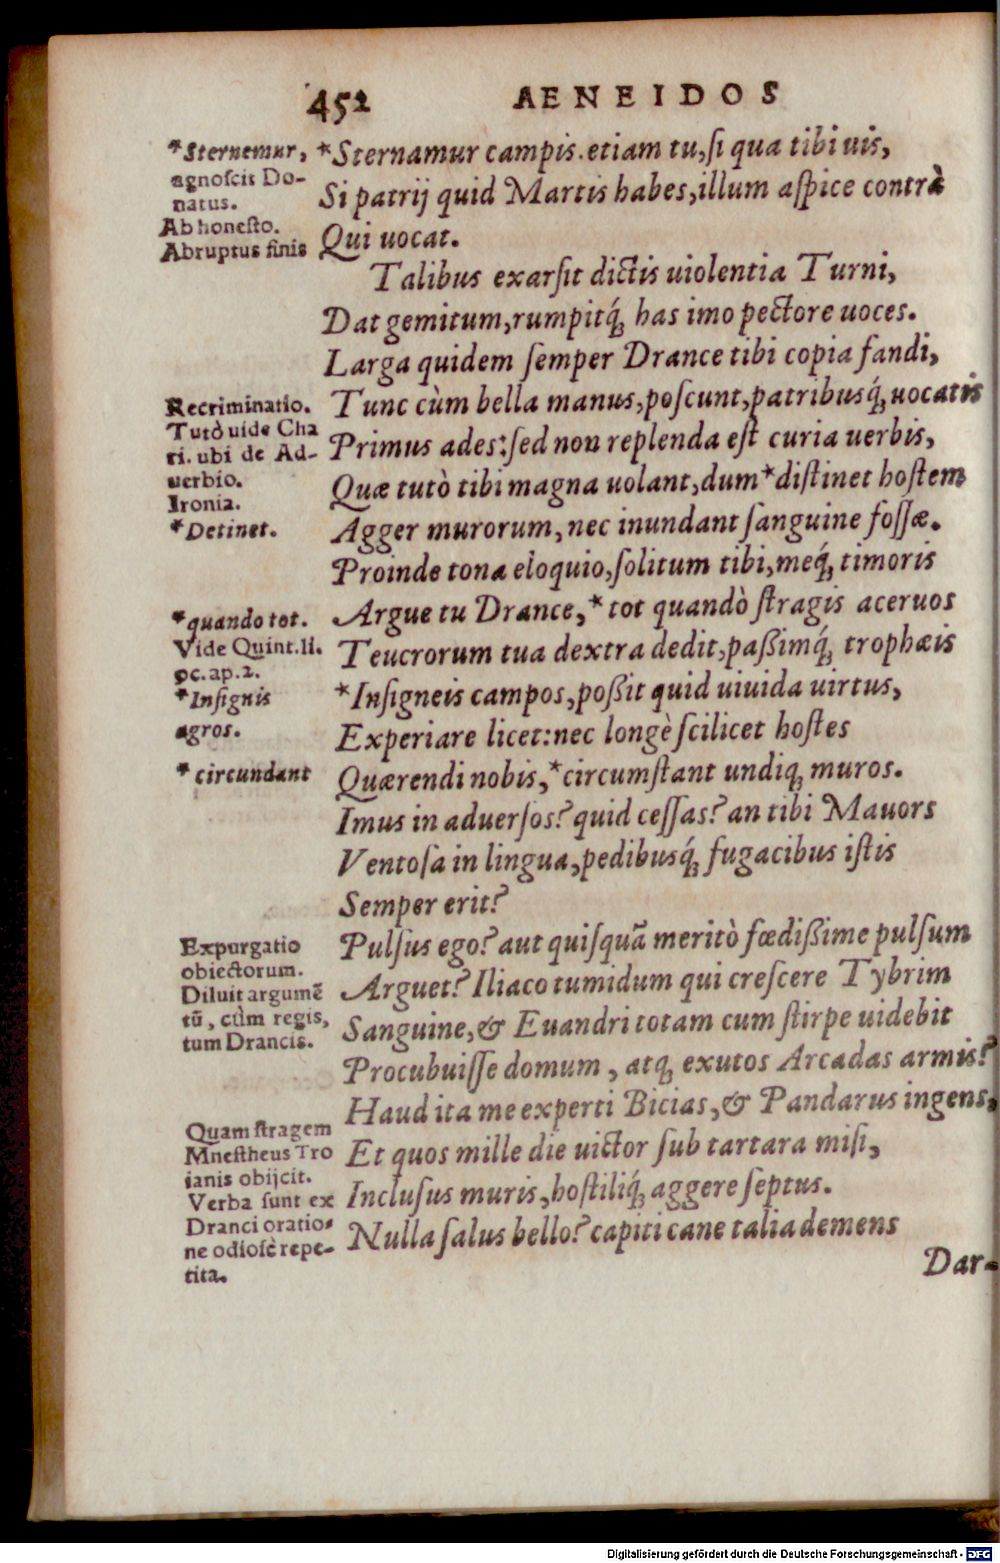 452 AENEIDOS
*Sternemur,
agnoscit Do-
natus.
Ab honesto.
Abruptus finis
*Sternamur campis. etiam tu, si qua tibi uis,
Si patrij quid Martis habes, illum aspice contrà
Qui uocat.
Talibus exarsit dictis uiolentia Turni,
Dat gemitum, rumpitq́; has imo pectore uoces.
Larga quidem semper Drance tibi copia fandi,
Recriminatio.
Tutò uide Cha
ri. ubi de Ad-
uerbio.
Ironia.
*Detinet.
Tunc cùm bella manus, poscunt, patribusq́; uocatis
Primus ades: sed non replenda est curia uerbis,
Quæ tutò tibi magna uolant, dum *distinet hostem
Agger murorum, nec inundant sanguine fossæ.
Proinde tona eloquio, solitum tibi, meq́; timoris
*quando tot.
Vide Quint. li.
9c. ap. 2.
*Insignis
agros.
*circundant
Argue tu Drance, *tot quandò stragis aceruos
Teucrorum tua dextra dedit, paßimq́; trophæis
*Insigneis campos, poßit quid uiuida uirtus,
Experiare licet: nec longè scilicet hostes
Quærendi nobis, *circumstant undiq; muros.
Imus in aduersos? quid cessas? an tibi Mauors
Ventosa in lingua, pedibusq́; fugacibus istis
Semper erit?
Expurgatio
obiectorum.
Diluit argumē
tū, cùm regis,
tum Drancis.
Pulsus ego? aut quisquā meritò fœdißime pulsum
Arguet? Iliaco tumidum qui crescere Tybrim
Sanguine, & Euandri totam cum stirpe uidebit
Procubuisse domum, atq; exutos Arcadas armis?
Haud ita me experti Bicias, & Pandarus ingens,
Quam stragem
Mnestheus Tro
ianis obijcit.
Verba sunt ex
Dranci oratio-
ne odiosè repe-
tita.
Et quos mille die uictor sub tartara misi,
Inclusus muris, hostiliq́; aggere septus.
Nulla salus bello? capiti cane talia demens
Dar-
Digitalisierung gefördert durch die Deutsche Forschungsgemeinschaft - DFG